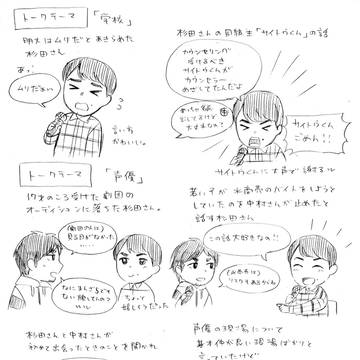 トークテーマ 「学校」
明大はムリだとあきらめた
杉田さん
あっ
ムリだぁい
言い方
かわいい。
杉田さんの同級生「サイトウくん」の話
カウンセリングが
受けるべき
サイトウくんが
カウンセラー
めざしてたんだよ
めっちゃ名前
出してるけど
大丈夫なん?
サイトウくん
ごめん!!
サイトウくんに大声で謝る
トークテーマ 「声優」
17才のころ受けた劇団の
オーディションに落ちた杉田さん。
(劇団の人は)
見る目がなかった
ちょっと
嬉しそうだった
若い子が水商売のバイトをしようと
していたのを中村さんが止めたと
話す杉田さん
この話大好きなの!!
杉田さんと中村さんが
初めて出会ったときのことを聞かれ
声優の現場について
基本仲が良い現場ばかりと
言っていたけど